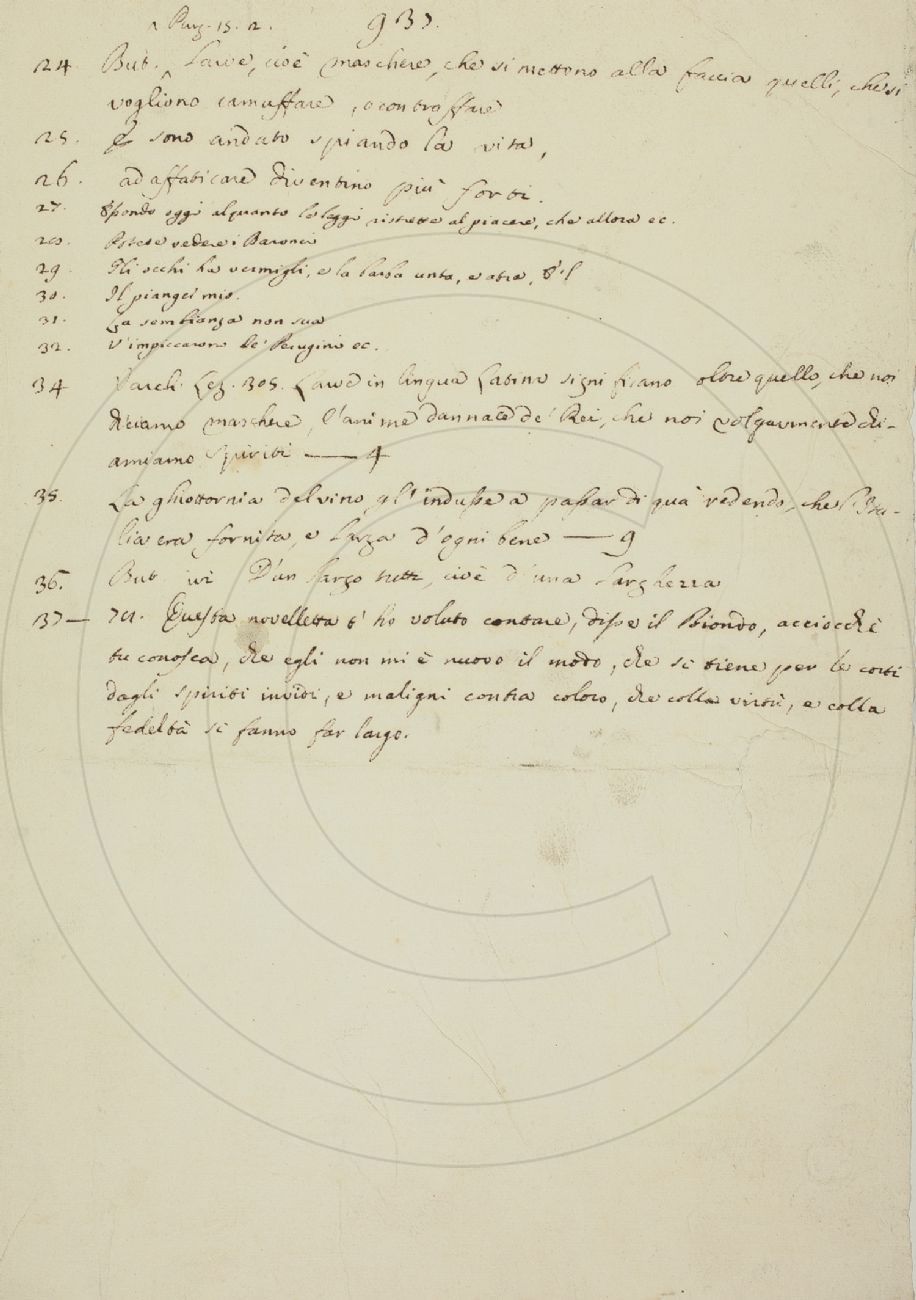 ^ Purg. 15. 2. 933.
24. But. Larve, cioè maschere, che si mettono alla faccia quelli, che si
vogliono camuffare, o contraffare
25. E sono andato spiando la vita,
26. ad affaticare diventino più forti.
27. oggi alquanto le leggi ristrette al piacere, che allora ec.
28. Potete vedere i Baronci
29. Gli occhi ha vermigli, e la barba unta, e atra, e 'l
30. Il pianger mio.
31. La sembianza non sua
32. S'impiccarono de' Perugini ec.
34 Varch. Lez. 305. Larve in lingua Latina significano oltre quello, che noi
diciamo maschere, l'anime dannate de' Rei, che noi volgarmente chi-
amiamo spiriti —— 4
35. La ghiottornia del vino gl' indusse a passar di quà vedendo, che l'Ita-
lia era fornita, e larga d'ogni bene —— 9
36. But. ivi D'un largo tutti, cioè d'una larghezza
37 — 71. Questa novelletta t' ho voluto contare, disse il Biondo, acciocchè
tu conosca, che egli non mi è nuovo il modo, che si tiene per le corti
dagli spiriti invidi, e maligni contra coloro, che colla virtù, e colla
fedeltà si fanno far largo.